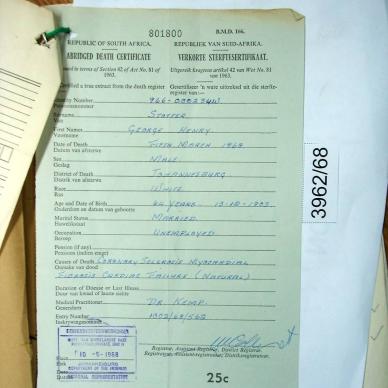 801800
B.M.D. 166.
REPUBLIC OF SOUTH AFRICA.
REPUBLIEK VAN SUID-AFRIKA.
ABRIDGED DEATH CERTIFICATE
VERKORTE STERFTESERTIFIKAAT
Issued in terms of Section 42 of Act No. 81 of 1963.
Uitgereik kragtens artikel 42 van Wet No. 81 van 1963.
Certified a true extract from the death register
Gesertifiseer 'n ware uittreksel uit die sterfteregister van:—
Identity Number
Surname STOFFER
Van
First Names GEORGE HENRY
Voorname
Date of Death FIFTH MARCH 1968
Datum van afsterwe
Sex MALE
Geslag
District of Death JOHANNESBURG
Distrik van afsterwe
Race WHITE
Ras
Age and Date of Birth 64 YEARS. 13-10-1903.
Ouderdom en datum van geboorte
Marital Status MARRIED
Huwelikstaat
Occupation UNEMPLOYED
Beroep
Pension (if any)
Pensioen (indien enige)
Causes of Death CORONARY SCLEROSIS MYOCARDIAL
Oorsake van dood FIBROSIS CARDIAC FAILURE (NATURAL)
Duration of Disease or Last Illness
Duur van kwaal of laaste siekte
Medical Practitioner DR KEMP.
Geneesheer
Entry Number
Inskrywingsnommer
Registrar, Assistant Registrar, District Registrar.
Registrateur, Assistent-registrateur, Distriksregistrateur.
10 -5- 1968
JOHANNESBURG
DEPARTMENT OF THE INTERIOR
25c
3962/68